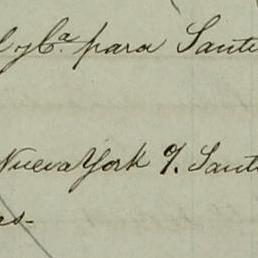 y Cª para Santi
Nueva York %. Santi
as-